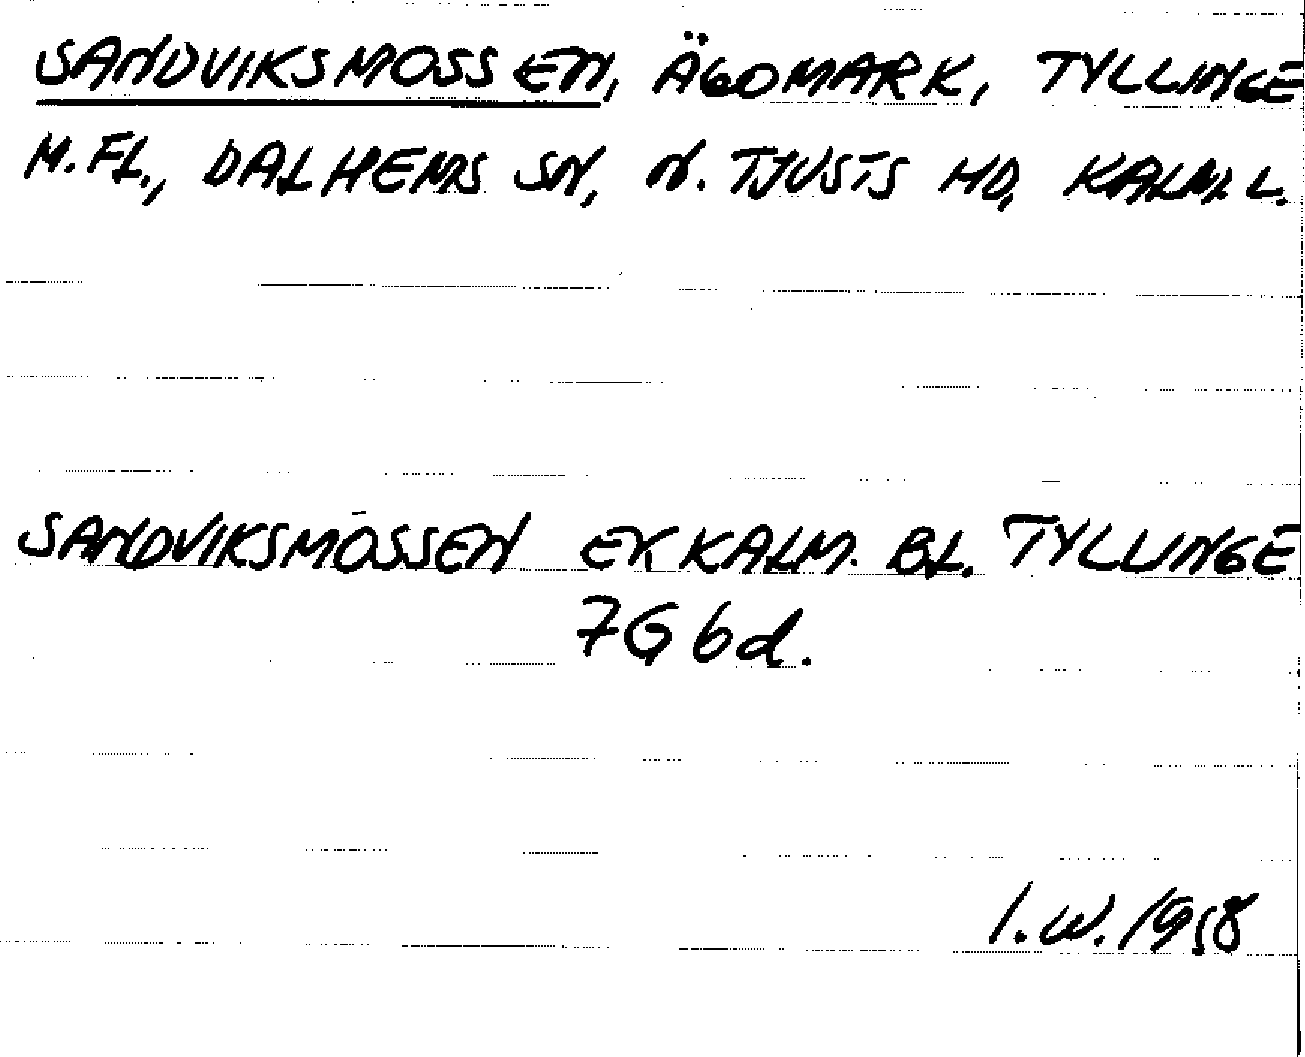 SANDVIKSMOSSEN, ÄGOMARK, TYLLINGE
M.FL., DALHEMS SN, N. TJUSTS HD, KALM. L.
SANDVIKSMOSSEN EK KALM. BL. TYLLINGE
7G 6d.
I.W. 1958